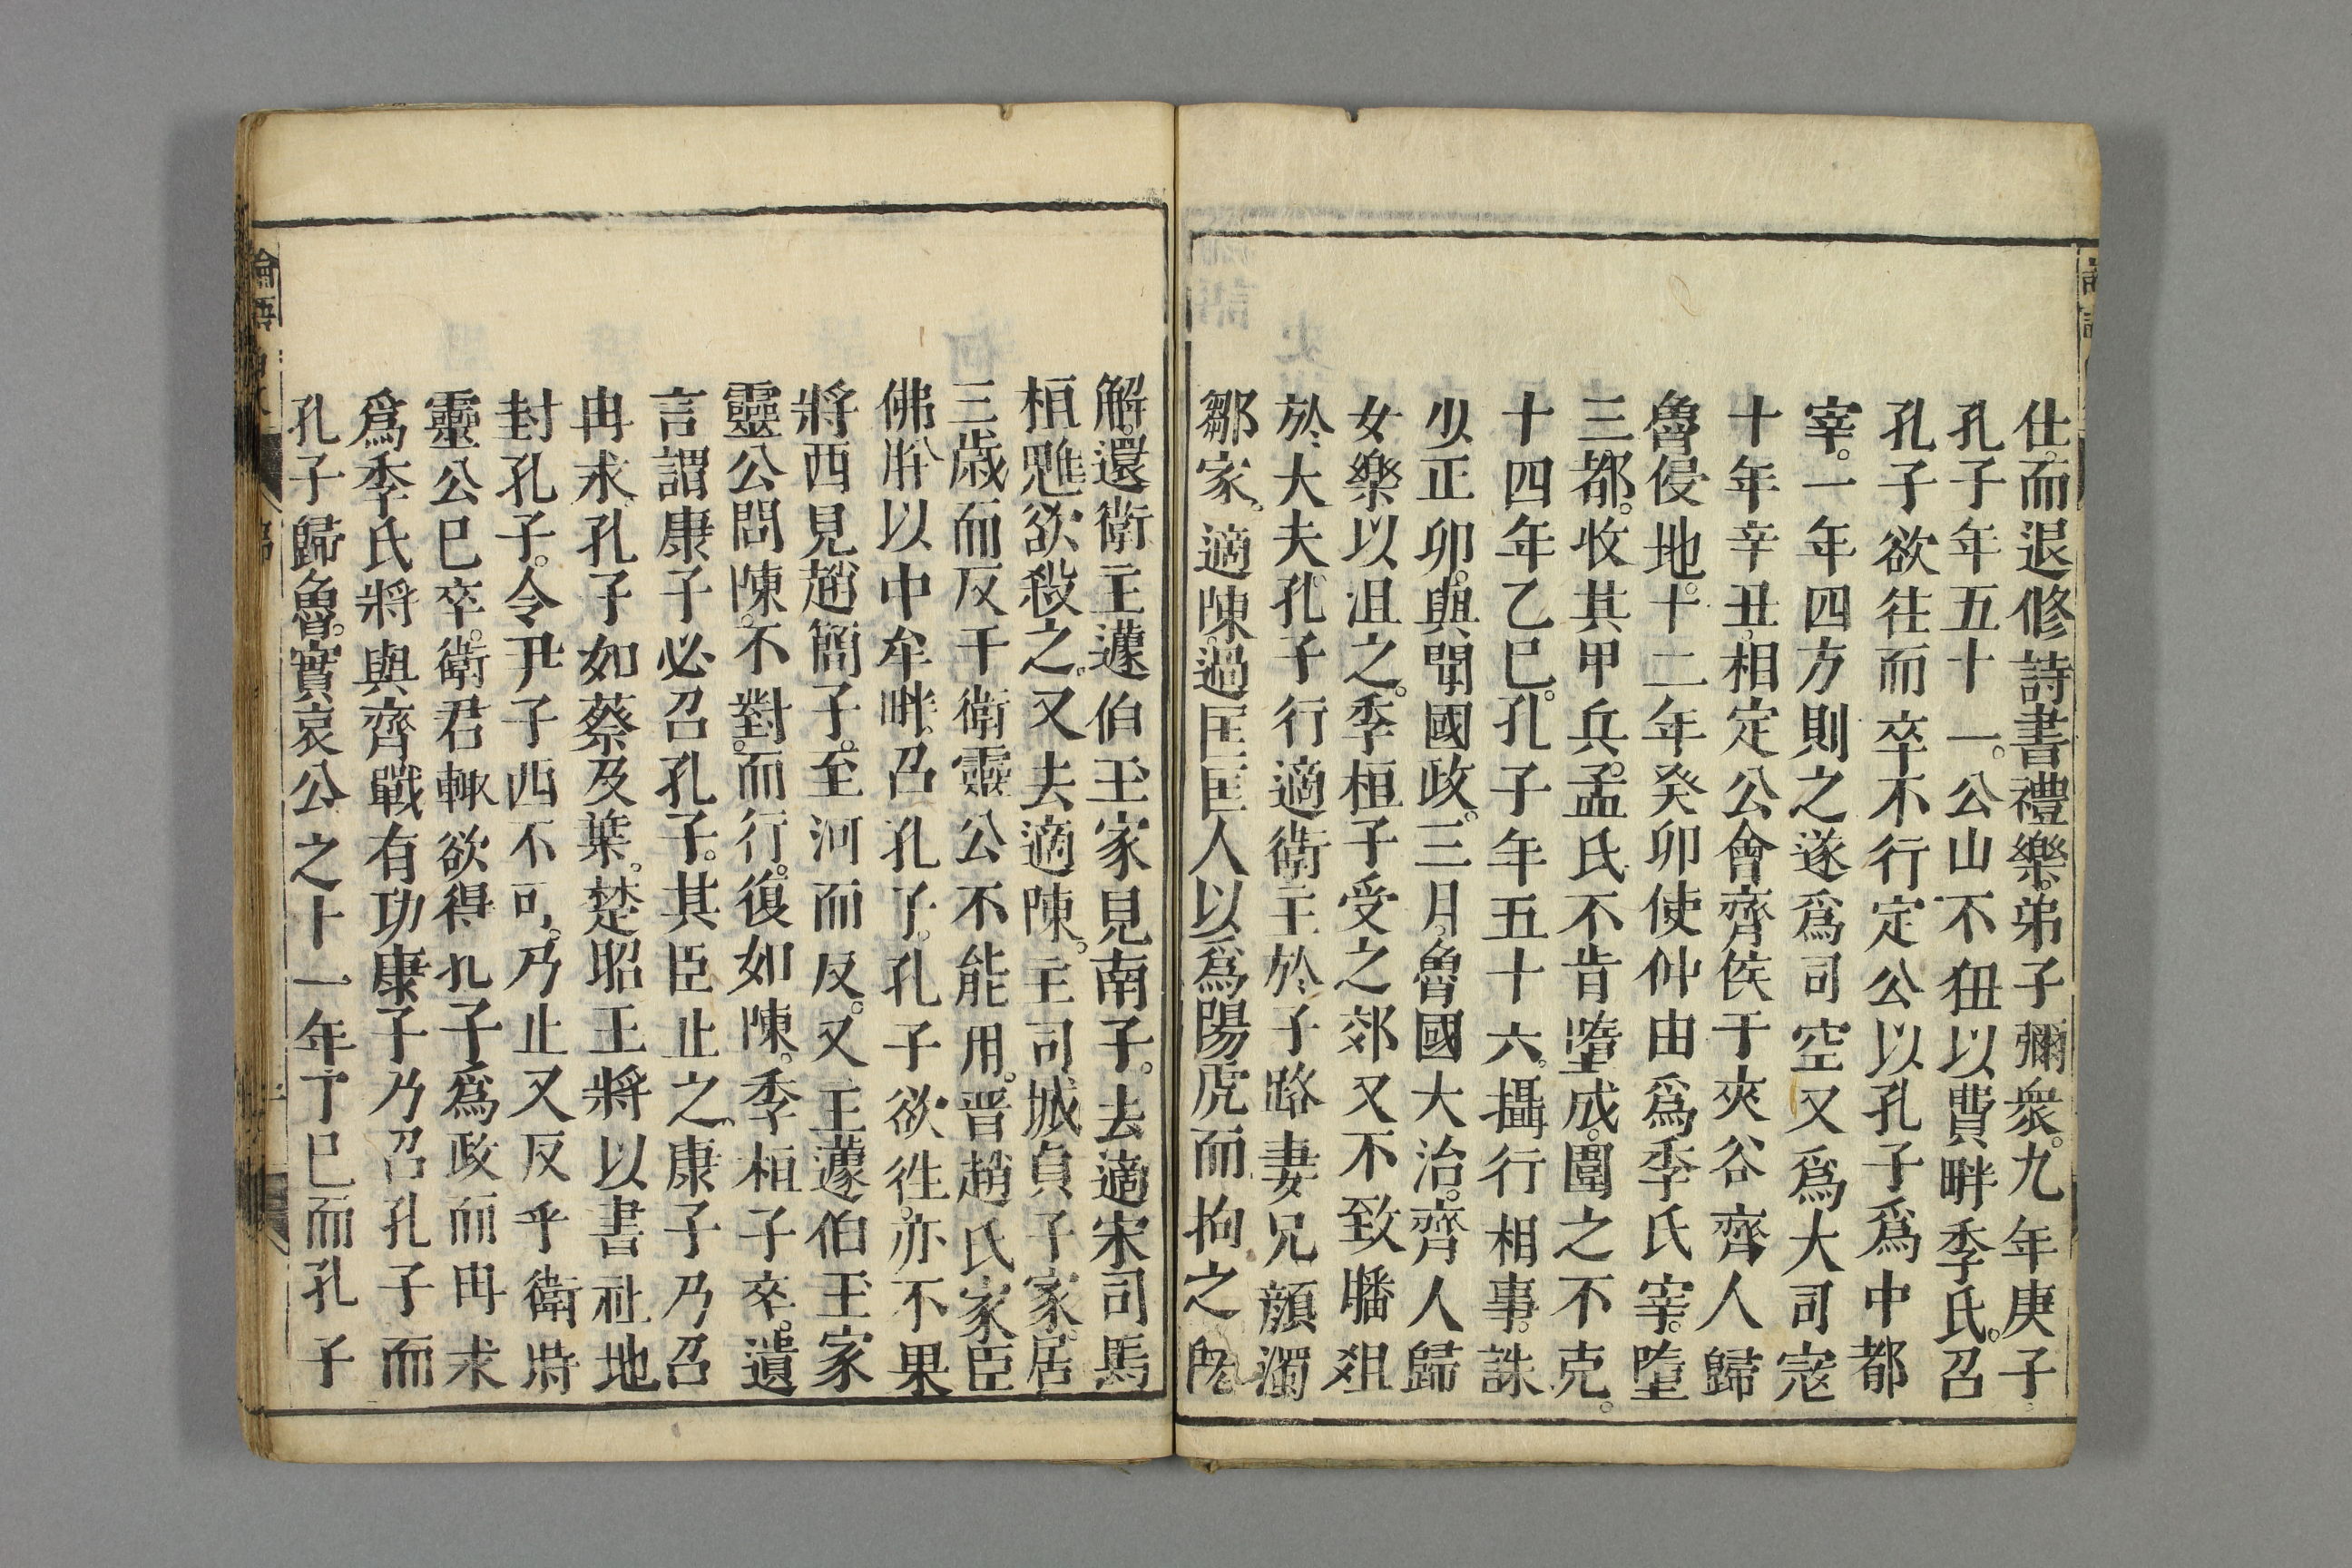 仕。而退修詩書禮樂。弟子彌衆。九年庚子。
孔子年五十一。公山不狃以費畔季氏。召
孔子欲往而卒不行定公以孔子爲中都
宰。一年四方則之遂爲司空又爲大司宼
十年辛丑。相定公會齊侯于夾谷齊人歸
魯侵地。十二年癸卯使仲由爲季氏宰。墮
三都。收其甲兵。孟氏不肯墮成。圍之不克。
十四年乙巳。孔子年五十六。攝行相事。誅
少正卯。與聞國政。三月。魯國大治。齊人歸
女樂以沮之。季桓子受之郊又不致膰俎
於大夫。孔子行適衛主於子路妻兄顔濁
鄒家。適陳。過匡匡人以爲陽虎而拘之旣
解。還衛主蘧伯玉家見南子。去適宋司馬
桓魋欲殺之。又去適陳。主司城貞子家。居
三歲而反于衛靈公不能用。晉趙氏家臣
佛肸以中牟畔。召孔子。孔子欲徃。亦不果
將西見趙簡子。至河而反。又主蘧伯玉家
靈公問陳。不對。而行。復如陳。季桓子卒。遺
言謂康子必召孔子。其臣止之。康子乃召
冉求。孔子如蔡及葉。楚昭王將以書社地
封孔子。令尹子西不可。乃止又反乎衛時
靈公巳卒。衛君輙欲得孔子爲政而冉求
爲季氏將與齊戰有功康子乃召孔子而
孔子歸魯。實哀公之十一年丁巳而孔子